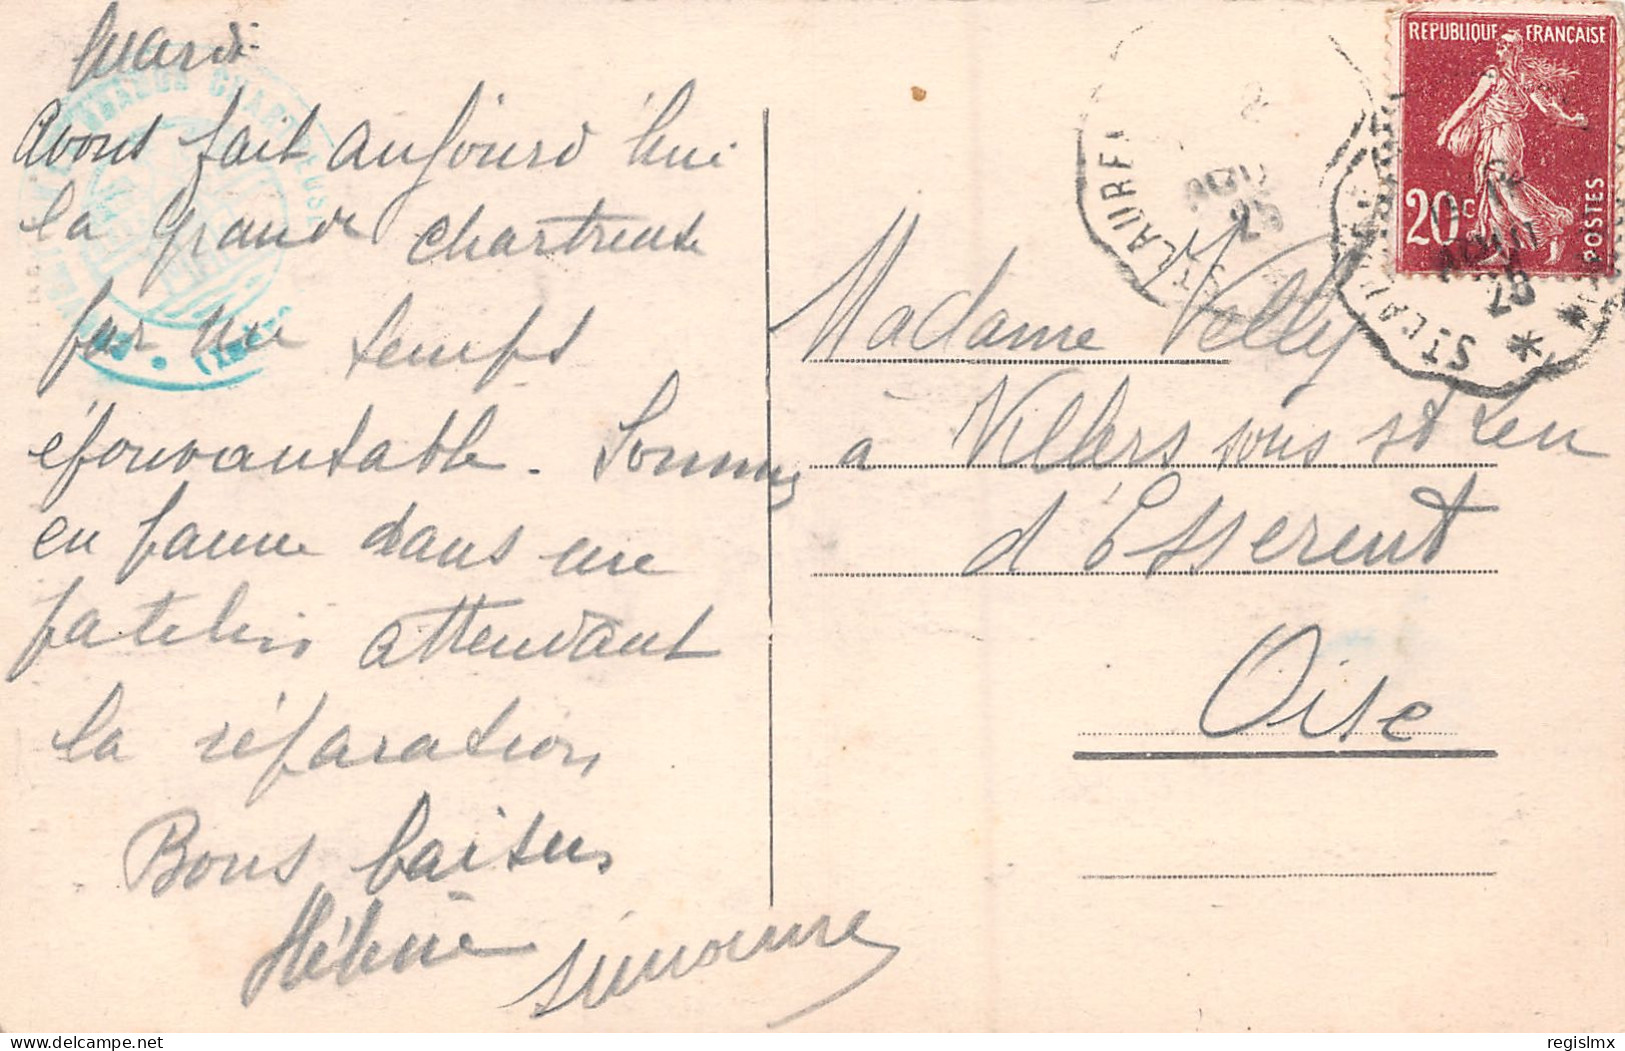 Mardi
Avons fait aujourd'hui
la grande chartreuse
par un temps
épouvantable. Sommes
en panne dans un
patelin attendant
la réparation
Bons baisers
Hélène Simonne
REPUBLIQUE FRANÇAISE
20c
POSTES
ST LAURE
AOU
25
ST LAU
AOU
Madame Velly
a Villers sous st Leu
d'Esserent
Oise
CHARTREUSE
regislmx